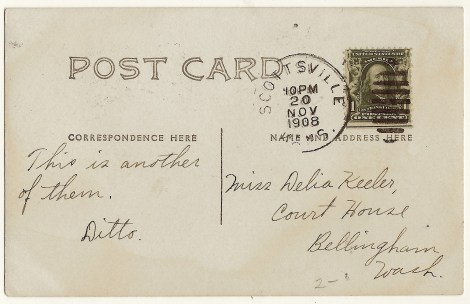 POST CARD
SCOTTSVILLE
10PM
20
NOV
1908
ONE CENT
CORRESPONDENCE HERE
NAME AND ADDRESS HERE
This is another
of them.
Ditto.
Miss Delia Keeler,
Court House
Bellingham
Wash.